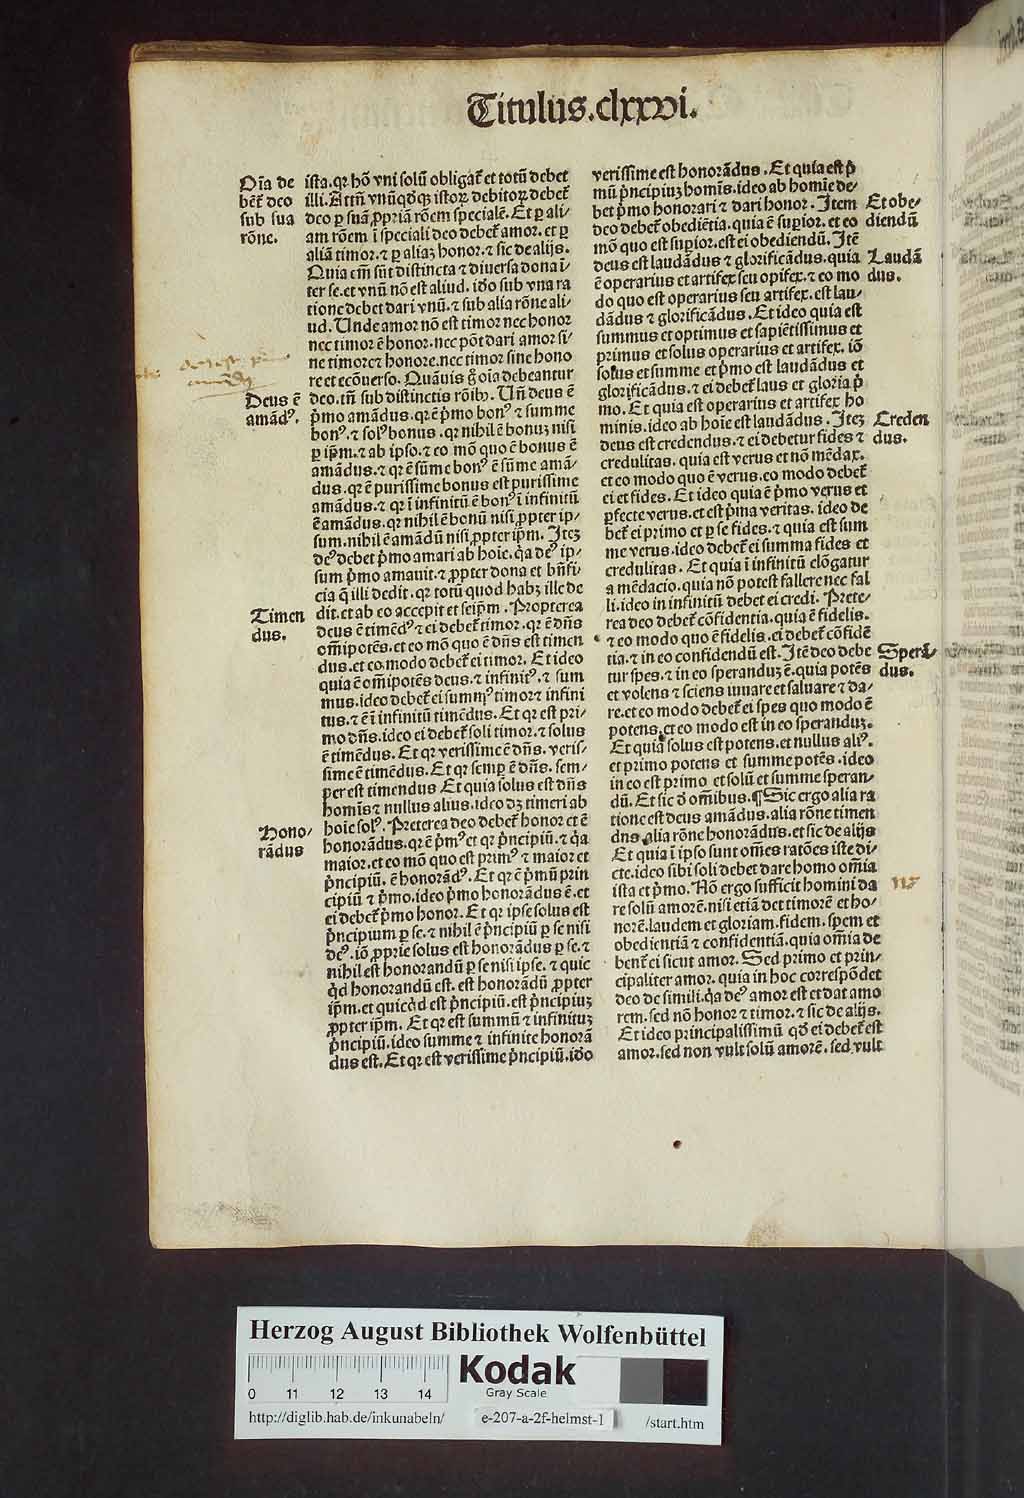 Titulus.clxxvi.
Oĩa de
bẽt̃ deo
sub sua
rõne.
ista.qꝛ hõ vni solũ obligat̃ et totũ debet
illi. A tñ vnũqd̕qꝫ istoꝝ debitoꝝ debet̃
deo ꝑ suã ꝓpriã rõem specialẽ. Et ꝑ ali/
am rõem ĩ speciali deo debet̃ amor. et ꝑ
aliã timor.⁊ ꝑ aliaꝫ honor.⁊ sic de alijs.
Quia em̃ sũt distincta ⁊ diuersa dona ĩ/
ter se.et vnũ nõ est aliud. ido sub vna ra
tione debet dari vnũ.⁊ sub alia rõne ali/
ud. Unde amor nõ est timor nec honor
nec timor ẽ honor.nec põt dari amor si/
ne timoreꝫ honore.nec timor sine hono
re et ecõuerso. Quãuis g̊ oĩa debeantur
Deus ẽ
amãd᷒.
deo.tñ sub distinctis rõibꝰ. Uñ deus ẽ
p̃mo amãdus.qꝛ ẽ p̃mo bonꝰ ⁊ summe
bonꝰ.⁊ solꝰ bonus.qꝛ nihil ẽ bonuꝫ nisi
ꝑ ip̃m.⁊ ab ipso.⁊ eo mõ quo ẽ bonus ẽ
amãdus.⁊ qꝛ ẽ sũme bonꝰ ẽ sũme amã/
dus.qꝛ ẽ purissime bonus est purissime
amãdus.⁊ qꝛ ĩ infinitũ ẽ bonꝰ ĩ infinitũ
ẽ amãdus.qꝛ nihil ẽ bonũ nisi ꝓpter ip/
sum.nihil ẽ amãdũ nisi ꝓpter ip̃m. Iteꝫ
deꝰ debet p̃mo amari ab hoie.q̃a deꝰ ip/
sum p̃mo amauit.⁊ ꝓpter dona et bñfi/
cia q̃ illi dedit.qꝛ totũ quod habꝫ ille de
Timen
dus.
dit.et ab eo accepit et seip̃m. Propterea
deus ẽ timẽdꝰ ⁊ ei debet̃ timor.qꝛ ẽ dñs
om̃ipotẽs.et eo mõ quo ẽ dñs est timen
dus.et eo modo debet̃ ei timor. Et ideo
quia ẽ om̃ipotẽs deus.⁊ infinitꝰ.⁊ sum
mus.ideo debet̃ ei summꝰ timor ⁊ infini
tus.⁊ ẽ ĩ infinitũ timẽdus. Et qꝛ est pri/
mo dñs.ideo ei debet̃ soli timor.⁊ solus
ẽ timẽdus. Et qꝛ verissime ẽ dñs. veris/
sime ẽ timẽdus. Et qꝛ semꝑ ẽ dñs. sem/
per est timendus Et quia solus est dñs
homĩs ⁊ nullus alius.ideo dꝫ timeri ab
Hono/
rãdus
hoie solꝰ. Preterea deo debet̃ honor et ẽ
honorãdus.qꝛ ẽ p̃mꝰ et qꝛ p̃ncipiũ.⁊ q̃a
maior.et eo mõ quo est primꝰ ⁊ maior et
p̃ncipiũ. ẽ honorãdꝰ. Et qꝛ ẽ p̃mũ prin
cipiũ ⁊ p̃mo.ideo p̃mo honorãdus ẽ.et
ei debet̃ p̃mo honor. Et qꝛ ipse solus est
p̃ncipium ꝑ se.⁊ nihil ẽ p̃ncipiũ ꝑ se nisi
deꝰ.iõ ꝓprie solus est honorãdus ꝑ se.⁊
nihil est honorandũ ꝑ se nisi ipse.⁊ quic
q̃d honorandũ est. est honorãdũ ꝓpter
ip̃m.et quicq̃d est p̃ncipiũ.est p̃ncipiuꝫ
ꝓpter ip̃m. Et qꝛ est summũ ⁊ infinituꝫ
p̃ncipiũ.ideo summe ⁊ infinite honorã
dus est. Et qꝛ est verissime p̃ncipiũ.ido
verissime est honorãdus. Et quia est p̃
mũ p̃ncipiuꝫ homĩs.ideo ab homĩe de/
bet p̃mo honorari ⁊ dari honor. Item
Et obe/
diendũ
deo debet̃ obediẽtia.quia ẽ suꝑior.et eo
mõ quo est suꝑior.est ei obediendũ. Itẽ
Laudã
dus.
deus est laudãdus ⁊ glorificãdus.quia
ẽ operarius et artifex seu opifex.⁊ eo mo
do quo est operarius seu artifex.est lau/
dãdus ⁊ glorificãdus. Et ideo quia est
summus et optimus et sapiẽtissimus et
primus et solus operarius et artifex. iõ
solus et summe et p̃mo est laudãdus et
glorificãdus.⁊ ei debet̃ laus et gloria p̃
mo. Et quia est operarius et artifex ho
minis.ideo ab hoie est laudãdus. Iteꝫ
Creden
dus.
deus est credendus.⁊ ei debetur fides ⁊
credulitas. quia est verus et nõ mẽdax.
et eo modo quo ẽ verus.eo modo debet̃
ei et fides. Et ideo quia ẽ p̃mo verus et
ꝑfecte verus.et est p̃ma veritas. ideo de
bet̃ ei primo et ꝑ se fides.⁊ quia est sum
me verus.ideo debet̃ ei summa fides et
credulitas. Et quia ĩ infinitũ elõgatur
a mẽdacio.quia nõ potest fallere nec fal
li.ideo in infinitũ debet ei credi. Prete/
rea deo debet̃ cõfidentia.quia ẽ fidelis.
⁊ eo modo quo ẽ fidelis.ei debet̃ cõfidẽ
Sperã/
dus.
tia.⁊ in eo confidendũ est. Itẽ deo debe
tur spes.⁊ in eo speranduꝫ ẽ.quia potẽs
et volens ⁊ sciens iuuare et saluare ⁊ da/
re.et eo modo debet̃ ei spes quo modo ẽ
potens.et eo modo est in eo speranduꝫ.
Et quia solus est potens.et nullus aliꝰ.
et primo potens et summe potẽs.ideo
in eo est primo et solũ et summe speran/
dũ. Et sic d̃ om̃ibus. ¶ Sic ergo alia ra
tione est deus amãdus.alia rõne timen
dus.alia rõne honorãdus.et sic de alijs
Et quia ĩ ipso sunt om̃es ratões iste di/
cte.ideo sibi soli debet dare homo om̃ia
ista et p̃mo. Nõ ergo sufficit homini da
re solũ amorẽ.nisi etiã det timorẽ et ho/
norẽ.laudem et gloriam.fidem.spem et
obedientiã ⁊ confidentiã.quia om̃ia de
bent̃ ei sicut amor. Sed primo et prin/
cipaliter amor. quia in hoc correspõdet
deo de simili.q̃a deꝰ amor est et dat amo
rem.sed nõ honor ⁊ timor.⁊ sic de alijs.
Et ideo principalissimũ qd̕ ei debet̃ est
amor.sed non vult solũ amorẽ.sed vult
Herzog August Bibliothek Wolfenbüttel
0 11 12 13 14
Kodak
Gray Scale
http://diglib.hab.de/inkunabeln/ e-207-a-2f-helmst-1 /start.htm